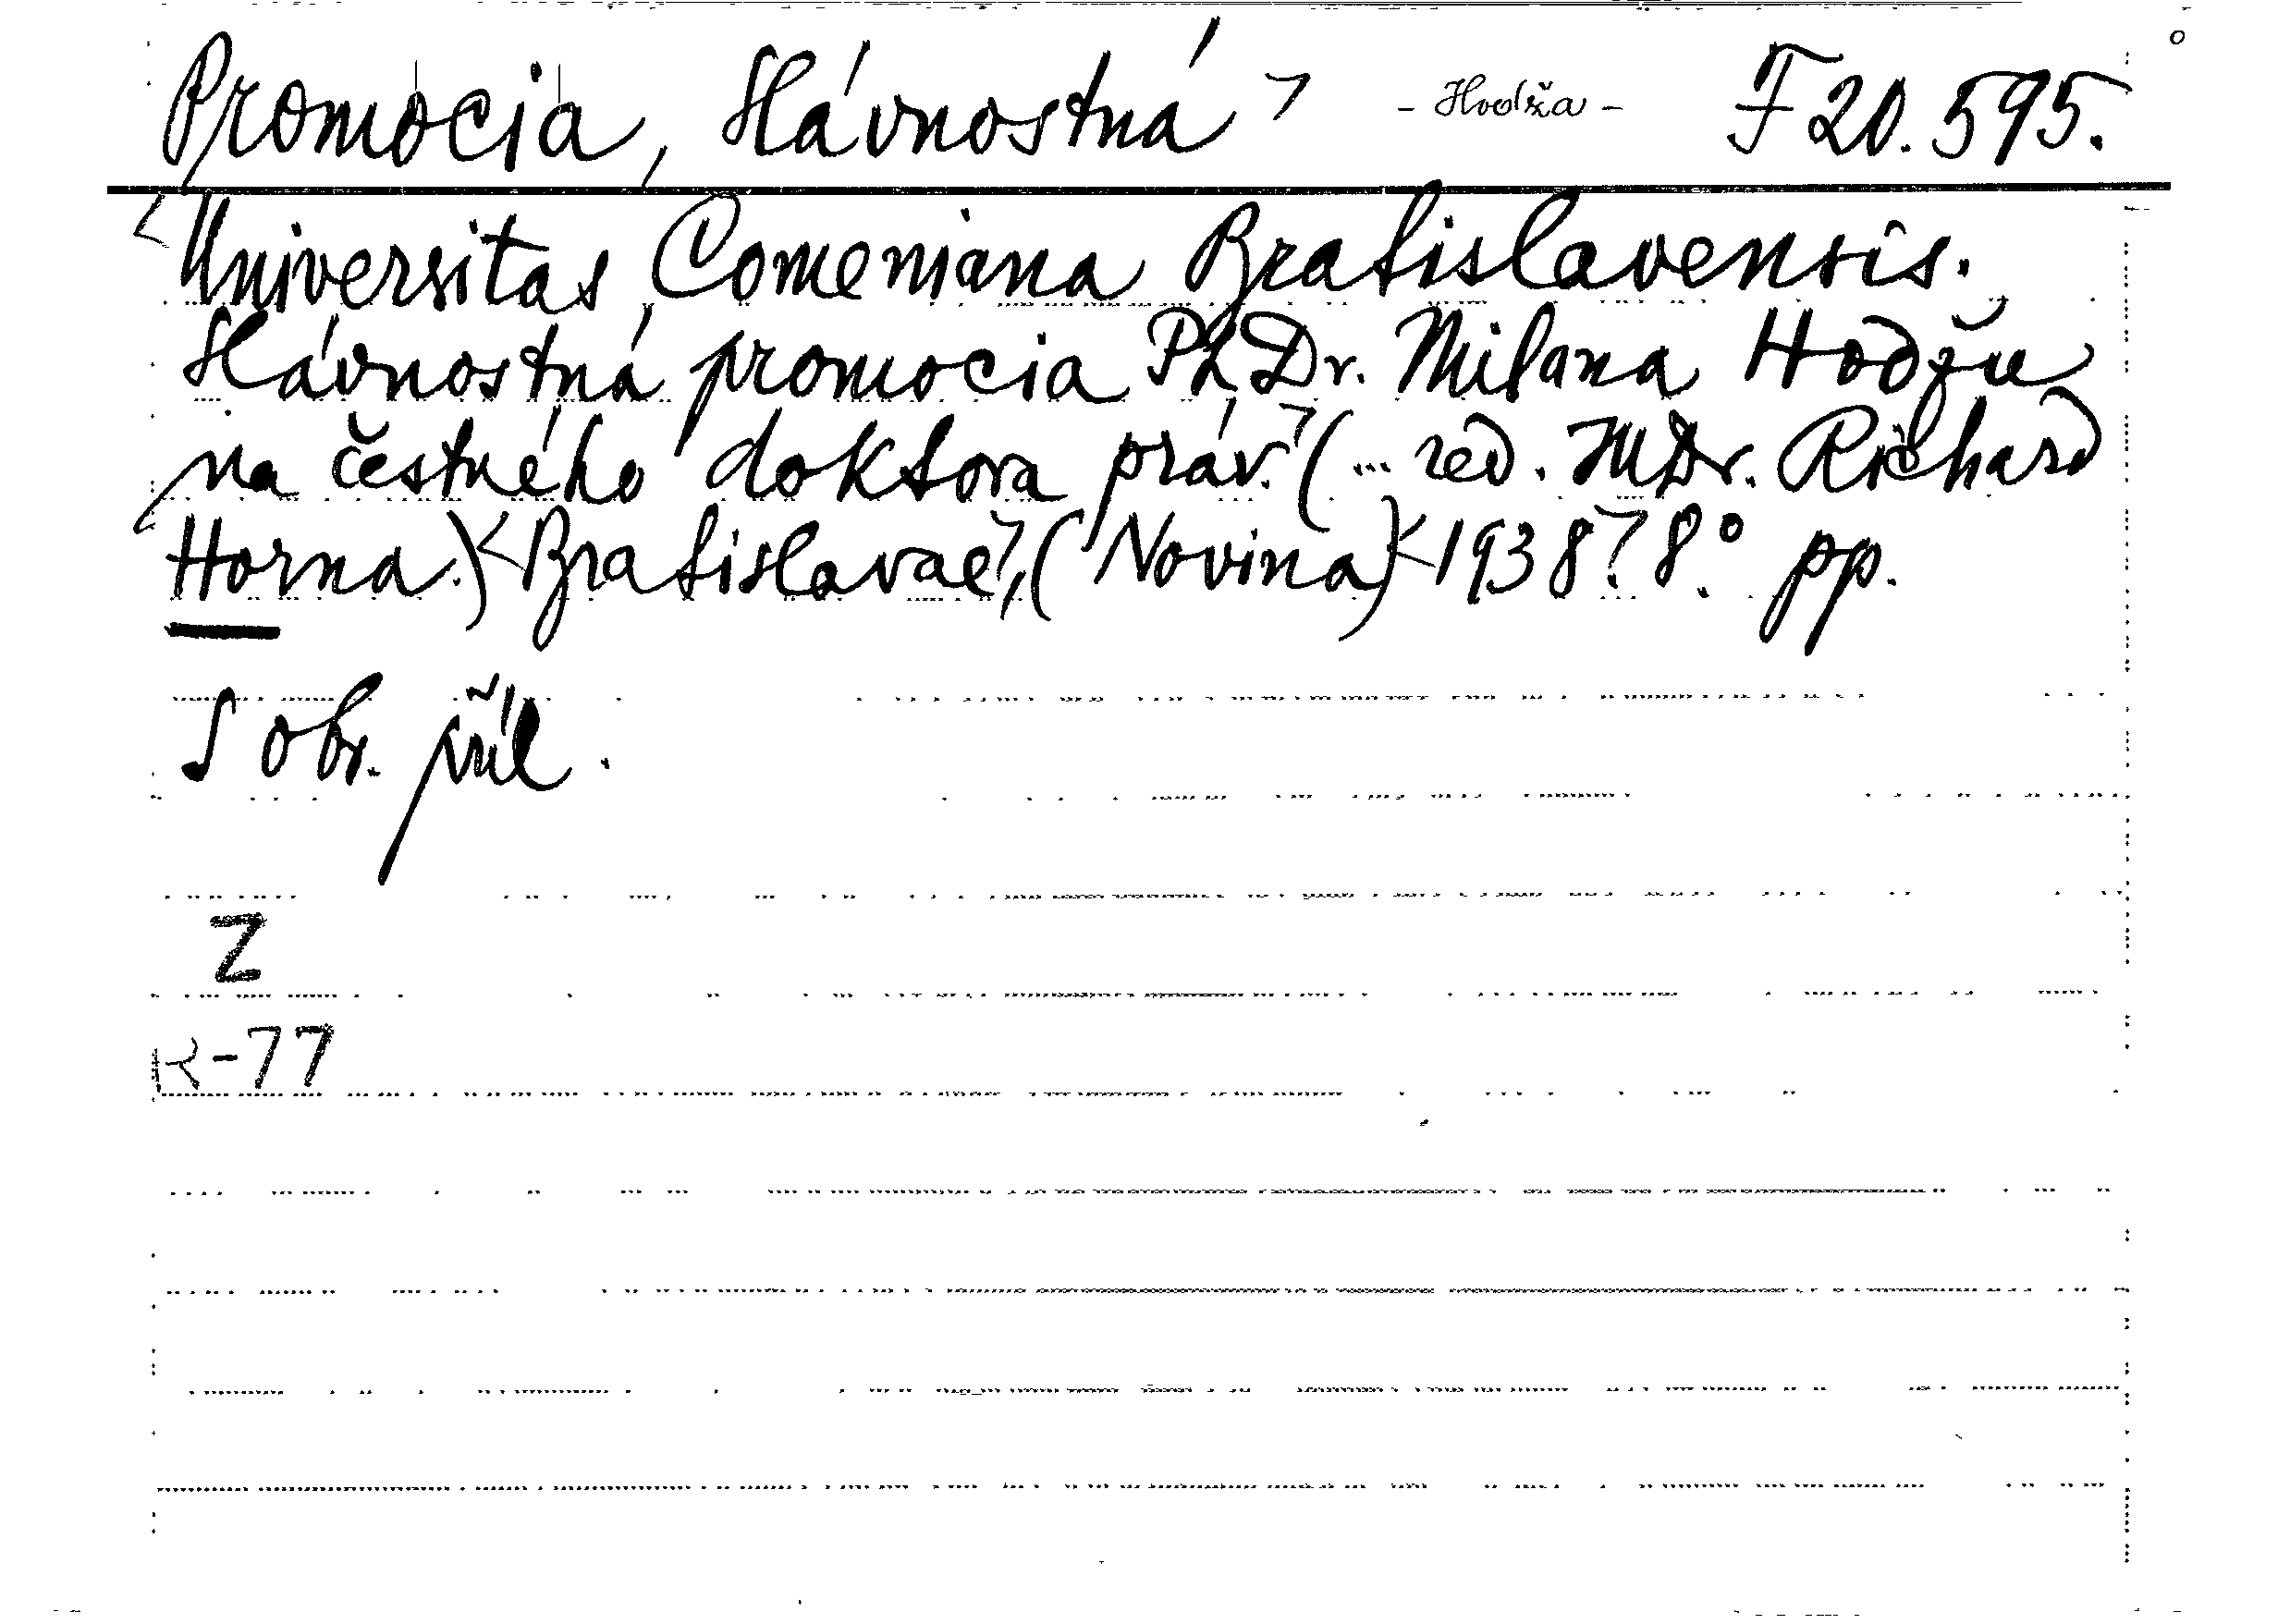 Promocia, Slávnostná> - Hodža - F 20.595.
<Universitas Comeniana Bratislavensis.
Slávnostná promocia PhDr. Milana Hodžu
na čestného doktora práv.> (... red. JUDr. Richard
Horna.) <Bratislavae>, (Novina) <1938>. 8.° pp.
S obr. příl.
Z
R-77